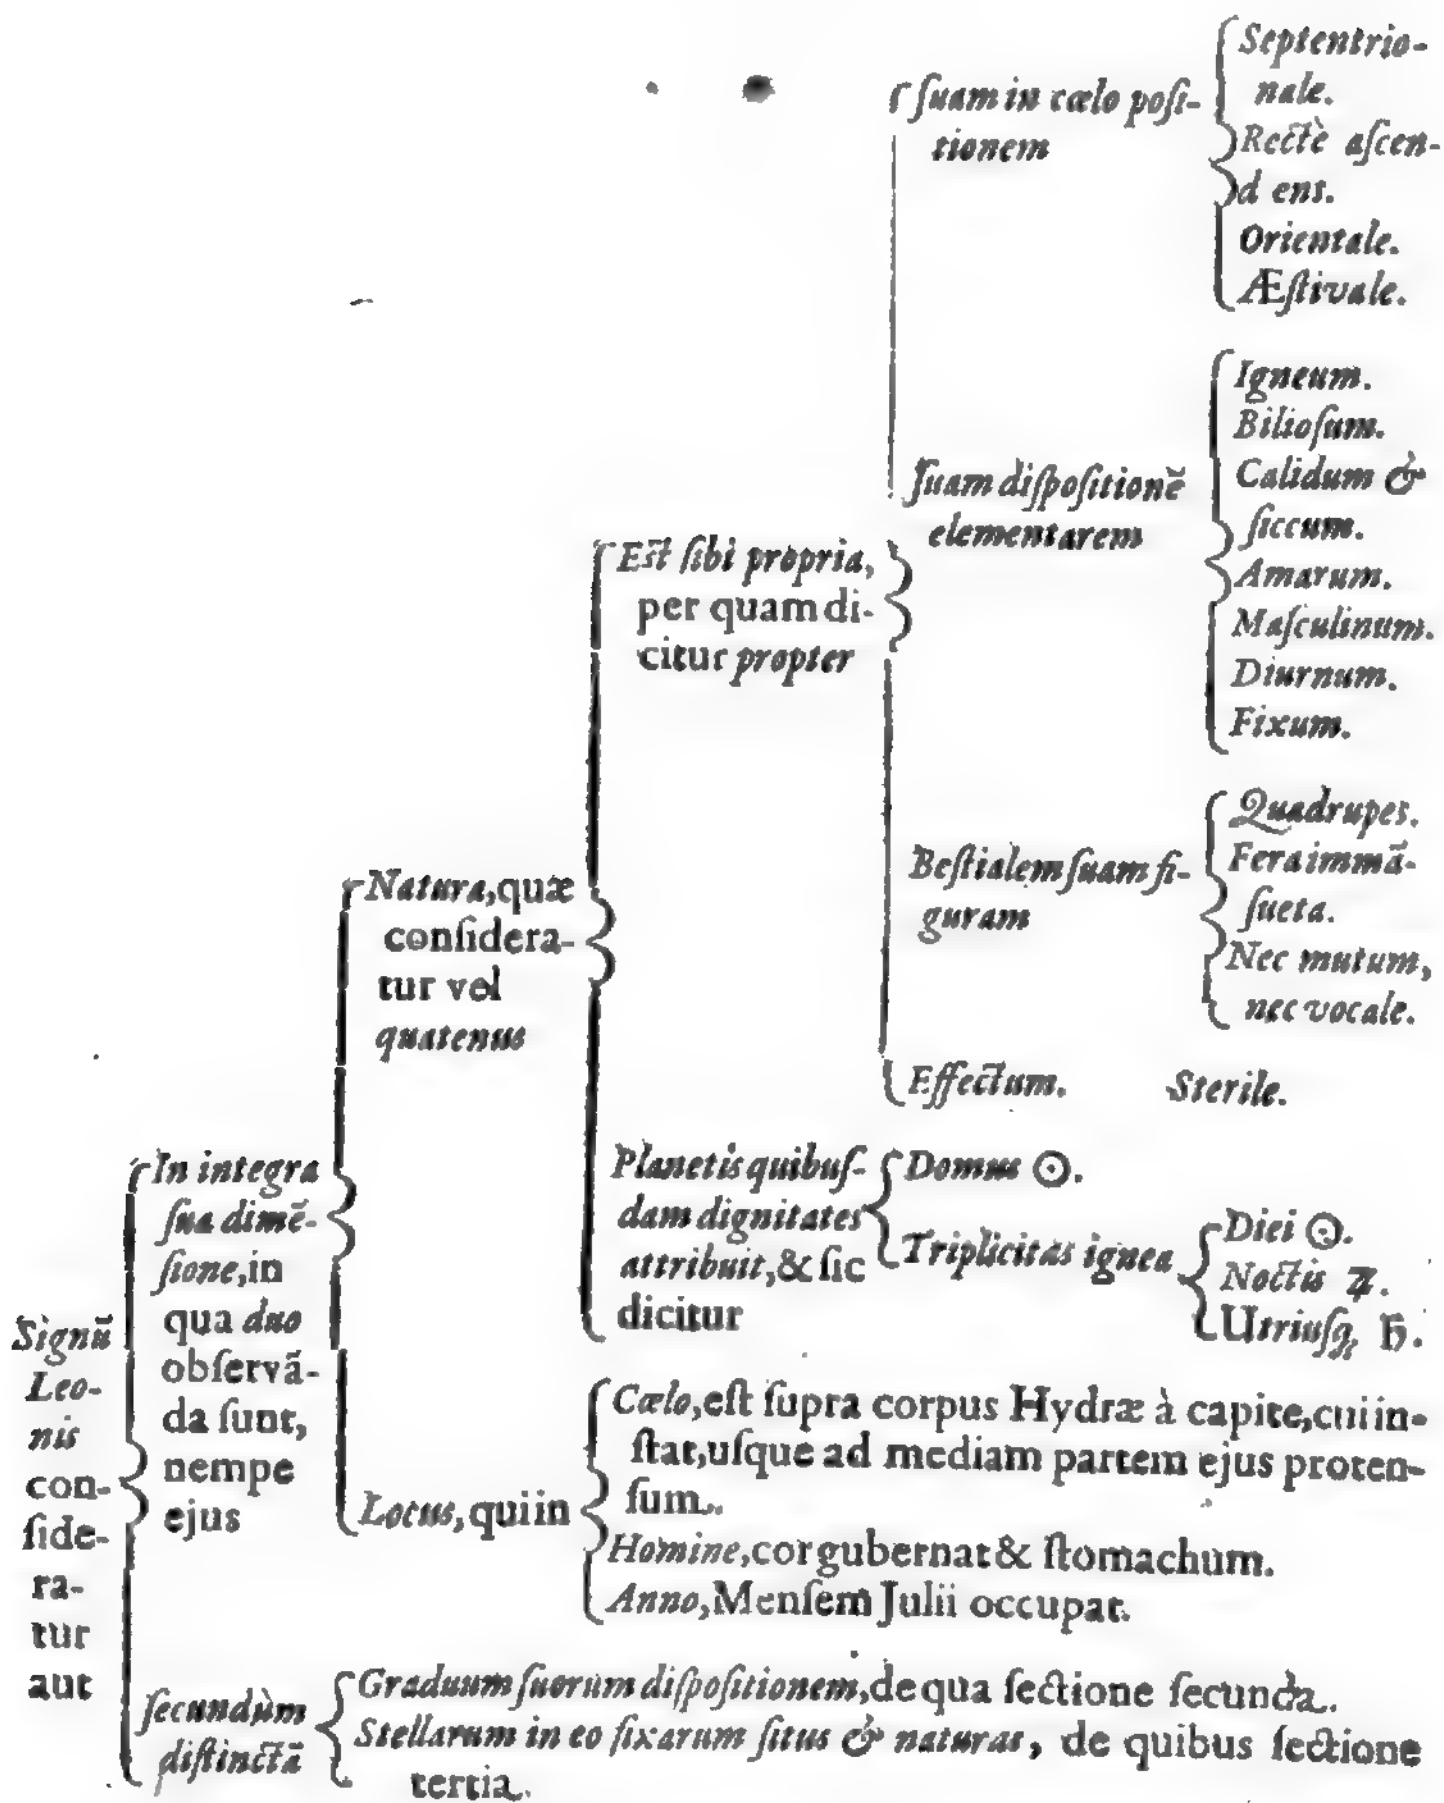 Signū
Leo-
nis
con-
ſide-
ra-
tur
aut
In integra
ſua dimē-
ſione, in
qua duo
obſervā-
da ſunt,
nempe
ejus
Natura, quæ
conſidera-
tur vel
quatenus
Eſt ſibi propria,
per quam di-
citur propter
ſuam in cœlo poſi-
tionem
Septentrio-
nale.
Rectè aſcen-
d ens.
Orientale.
Æſtivale.
ſuam diſpoſitionē
elementarem
Igneum.
Bilioſum.
Calidum &
ſiccum.
Amarum.
Maſculinum.
Diurnum.
Fixum.
Beſtialem ſuam fi-
guram
Quadrupes.
Fera immā-
ſueta.
Nec mutum,
nec vocale.
Effectum. Sterile.
Planetis quibuſ-
dam dignitates
attribuit, & ſic
dicitur
Domus ☉.
Triplicitas ignea
Diei ☉.
Noctis ♃.
Utriuſq; ♄.
Locus, qui in
Cœlo, eſt ſupra corpus Hydræ à capite, cui in-
ſtat, uſque ad mediam partem ejus proten-
ſum.
Homine, cor gubernat & ſtomachum.
Anno, Menſem Julii occupat.
ſecundùm
diſtinctā
Graduum ſuorum diſpoſitionem, de qua ſectione ſecunda.
Stellarum in eo fixarum ſitus & naturas, de quibus ſectione
tertia.